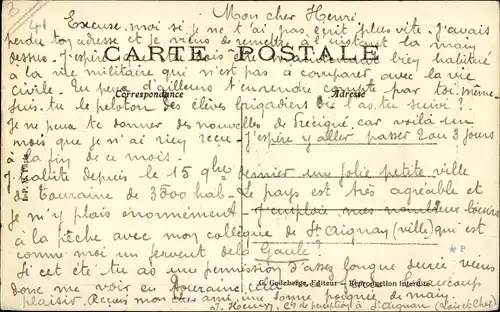 41
Mon cher Henri,
Excuse-moi si je ne t'ai pas écrit plus vite. J'avais
perdu ton adresse et je viens de remettre à l'instant la main
dessus. J'espère
CARTE POSTALE
bien habitué
à la vie militaire qui n'est pas à comparer avec la vie
civile. Tu peux d'ailleurs t'en rendre compte par toi-même
Correspondance
Adresse
Suis-tu le peloton des élèves brigadiers ou l'as-tu suivi ?
Je ne peux te donner des nouvelles de car voilà un
mois que je n'ai rien reçu J'espère y aller passer 2 ou 3 jours
à la fin de ce mois.
J'habite depuis le 15 dernier une jolie petite ville
de Touraine de 3500 hab. Le pays est très agréable et
je m'y plais énormément. J'emploie mes nombreux loisirs
à la pêche avec mon collègue de St Aignan (ville) qui est
comme moi un fervent de la Gaule !
*P
G. Godeberge, Editeur — Reproduction Interdite
Si cet été tu as une permission d'assez longue durée viens
donc me voir en Touraine cela beaucoup
plaisir. Reçois mon cher ami, une bonne poignée de main.
J. Henry, Cis de perception à St Aignan (Loir et Cher)